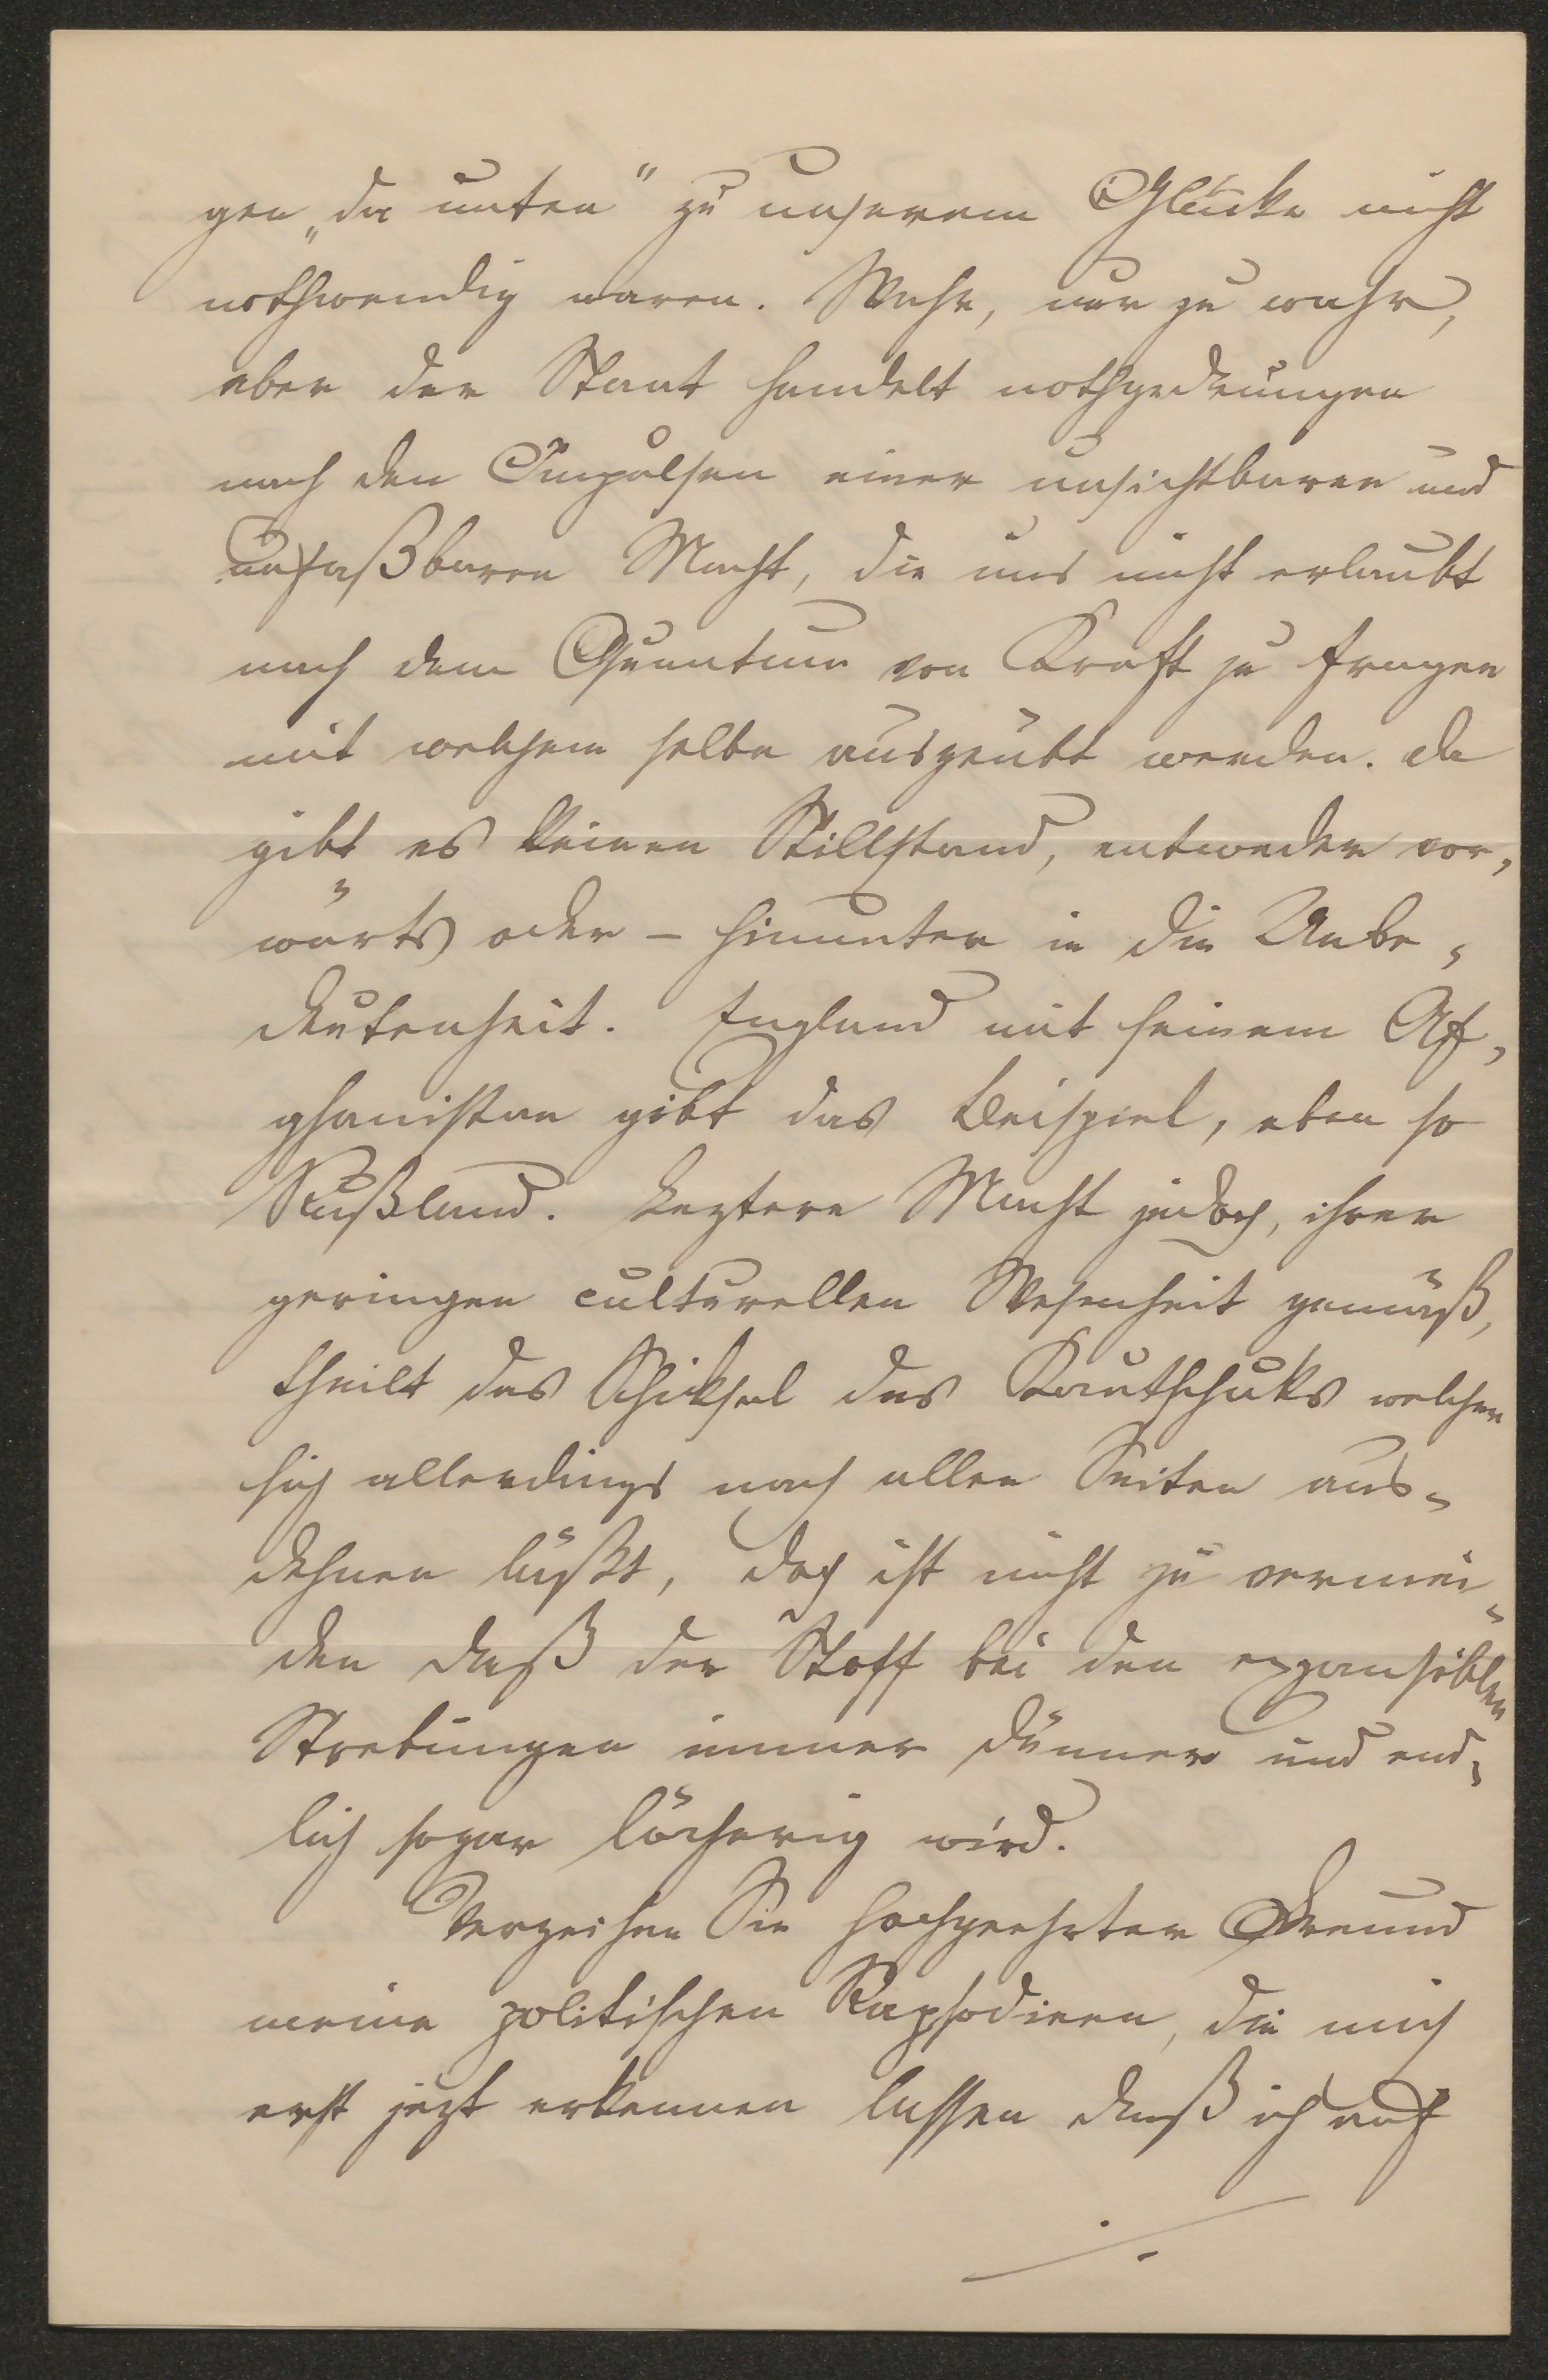 gen „da unten“ zu unserem Glücke nicht
nothwendig waren. Wahr, nur zu wahr,
aber der Staat handelt nothgedrungen
nach den Impulsen einer unsichtbaren und
unfaßbaren Macht, die uns nicht erlaubt
nach dem Quantum von Kraft zu fragen
mit welchem selbe ausgeübt werden. da
gibt es keinen Stillstand, entweder vor-
wärts oder – hinunter in die Unbe-
deutenheit. England mit seinem Af-
ghanistan gibt das Beispiel, eben so
Rußland. Leztere Macht jedoch, ihrer
geringen culturellen Wesenheit gemäß,
theilt das Schiksal des Kautschuks welcher
sich allerdings nach allen Seiten aus-
dehnen läßt, doch ist nicht zu vermei-
den daß der Stoff bei den expansiblen
Strebungen immer dünner und end-
lich sogar löcherig wird.
Verzeihen Sie hochgeehrter Freund
meine politischen Rapsodieen, die mich
erst jezt erkennen lassen daß ich auf
./.